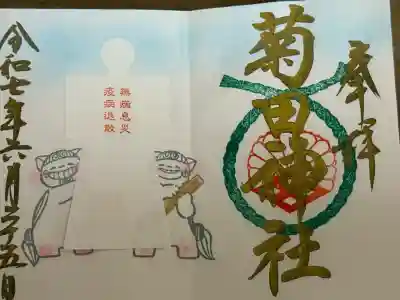 奉拝
菊田神社
無病息災
疫病退散
令和七年六月二十五日